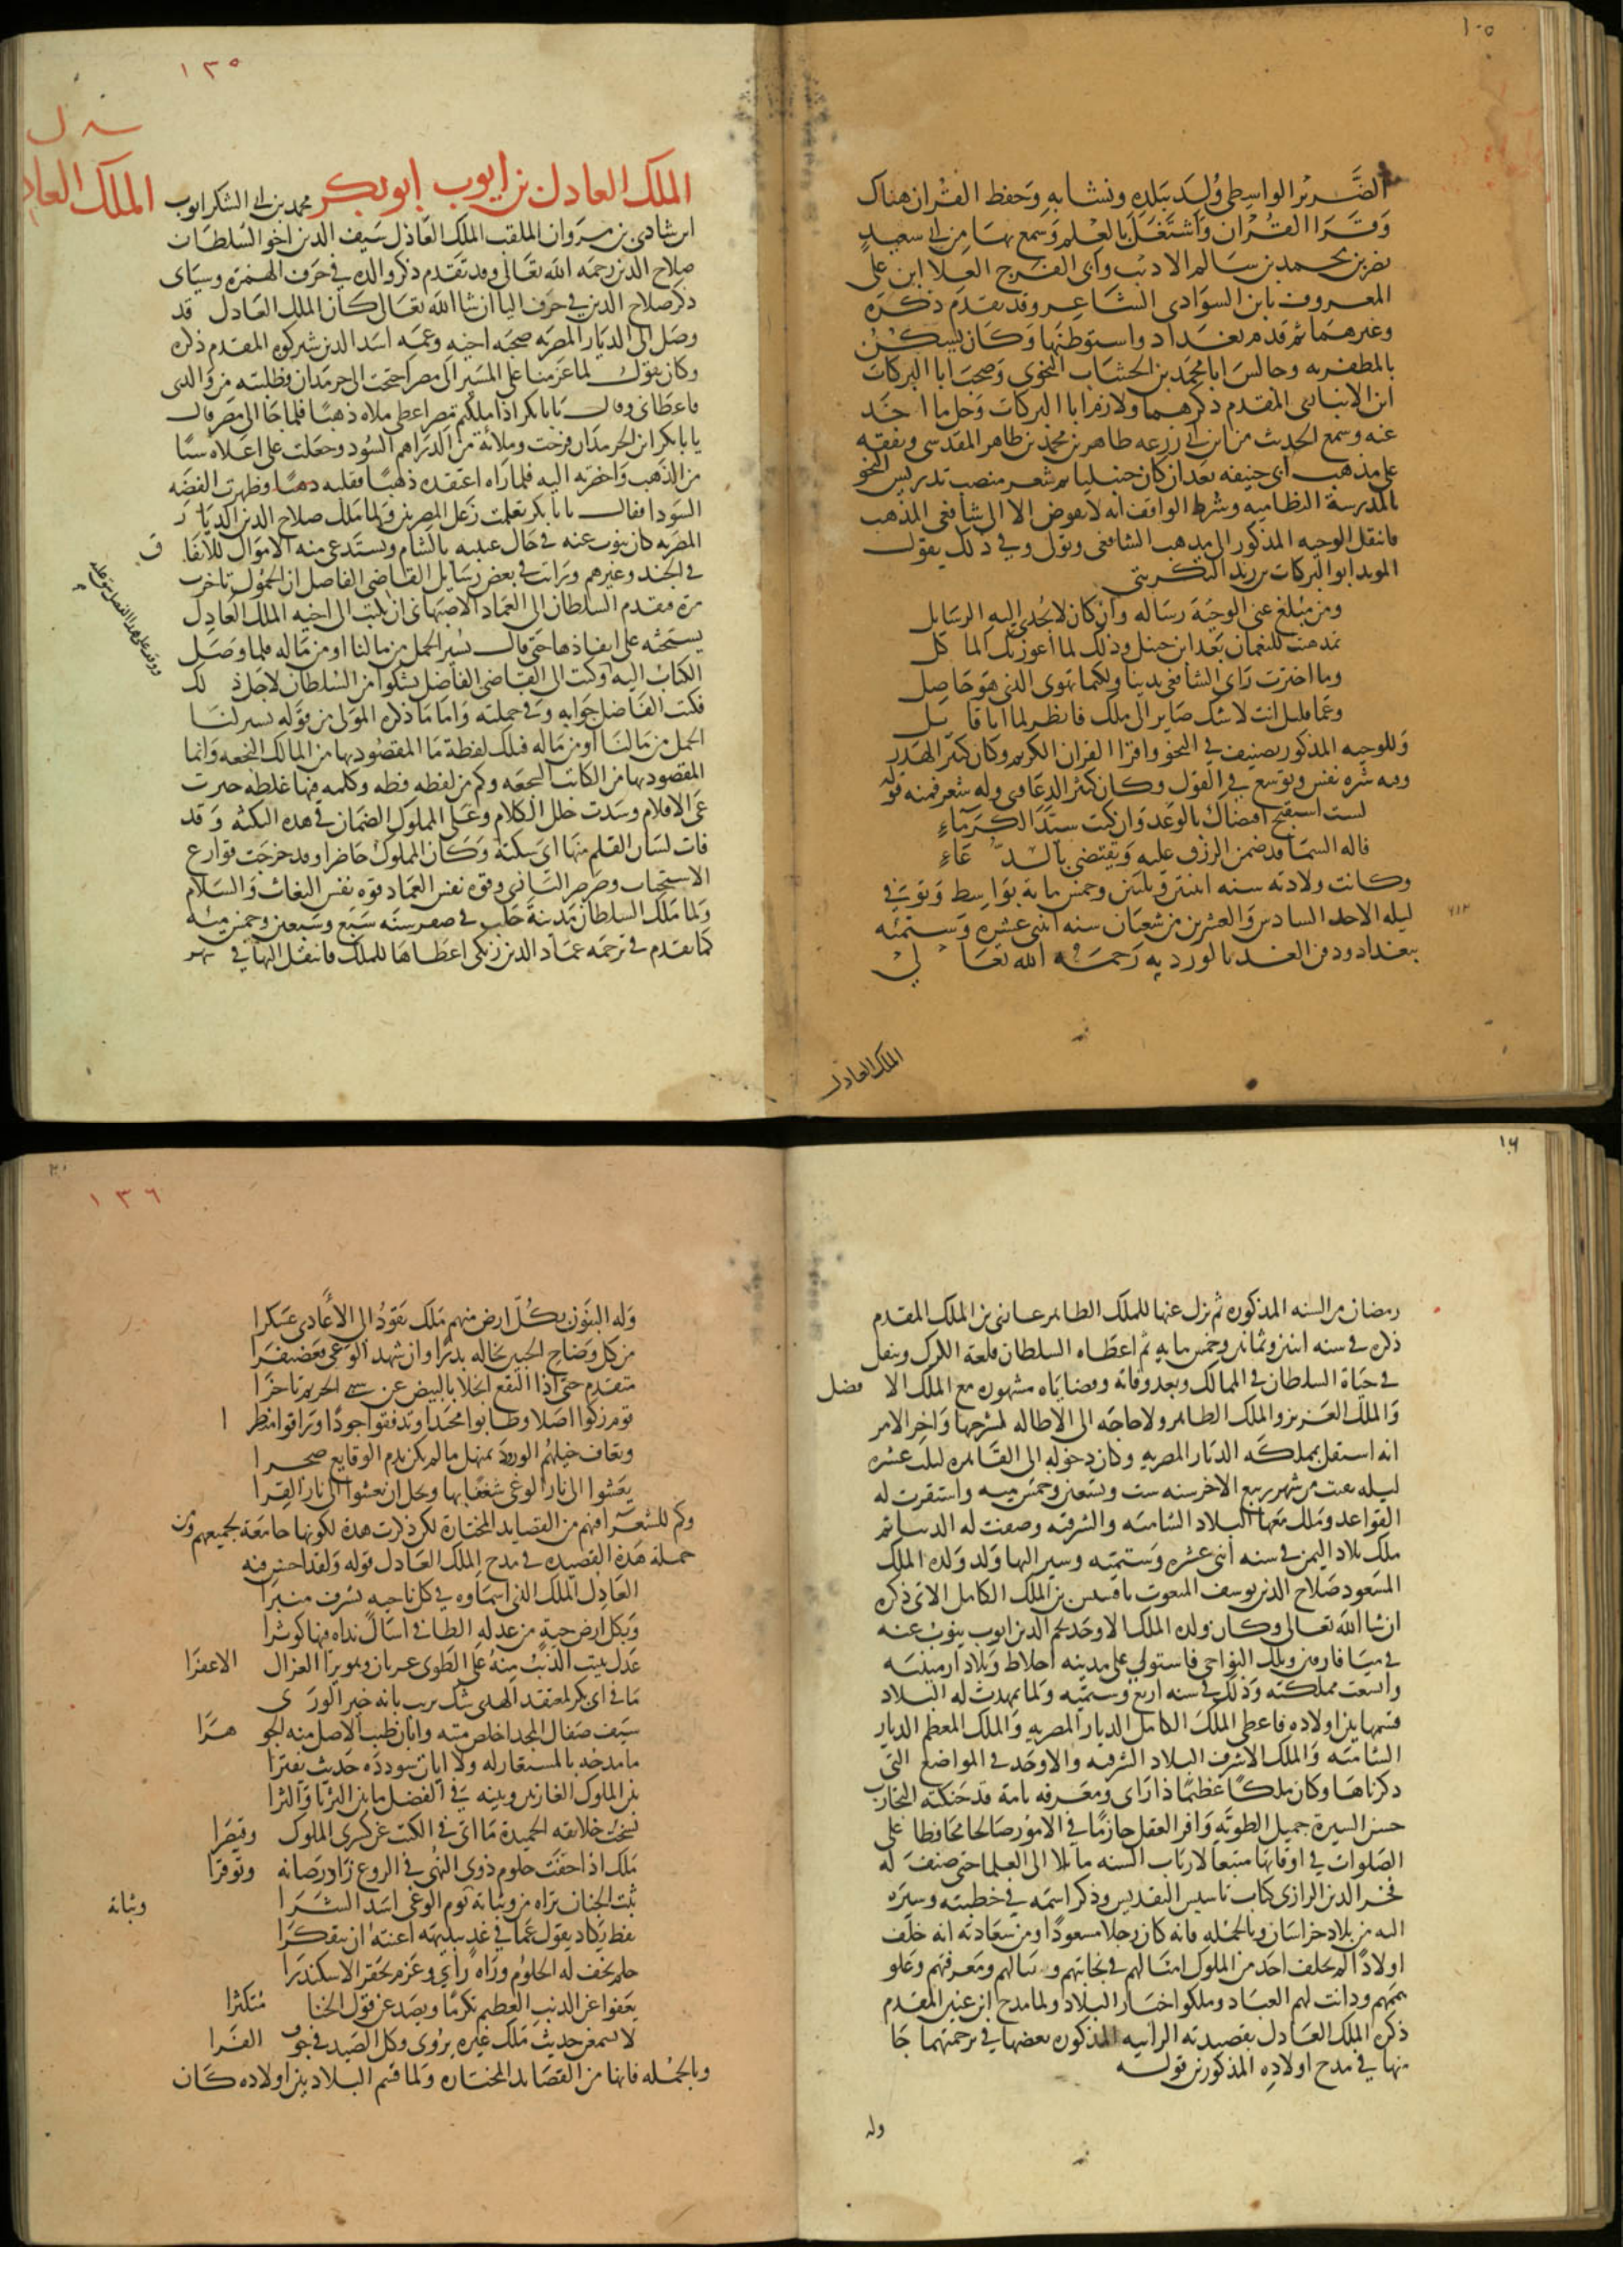 ١٠٥
الضَّرير الواسطي وُلِدَ ببلدِه ونشا بهِ وَحفظ القرْان هناك
وَقَرَا القُرْان وَاشتغَلَ بالعِلم وَسمع بها من ابى سعيد
نصر بن محمد بن سالم الاديب وابى الفرج العلا ابن على
المعروف بابن السوَادى الشاعر وقد تقدم ذكره
وغيرهما ثم قدم بغداد واستوطنها وَكان يسكن
بالمظفريه وجالسَ ابا محمد بن الخشاب النحوى وَصحبَ ابا البركات
ابن الانبارى المقدم ذكرهما ولازم ابا البركات وَجل ما اخذ
عنه وسمع الحديث من ابن ابى زرعه طاهر بن محمد بن طاهر المقدسى وتفقه
على مذهب ابى حنيفه بعد ان كان حنبليا ثم شغر منصب تدريس النحو
بالمدرسة النظاميه وشرط الواقف انه لا يفوض الا الى شافعى المذهب
فانتقل الوجيه المذكور الى مذهب الشافعى وتولى وفى ذلك يقول
المويد ابو البركات بن زيد التكريتى
ومن مبلغ عنى الوجيْهَ رساله وَان كان لا تُجدى اليه الرسايل
تمذهبت للنعمان بعد ابن حنبل وذلك لما اعوزتك الماكل
وما اخترت رَاى الشافعى تدينا ولكنما تهوى الذى هوَ حَاصِل
وعما قليل انت لا شك صاير الى مالك فانظر لما انا قايل
وَللوجيه المذكور تصنيف فى النحو واقرا القران الكريم وكان كثير الهذر
وفيه شره نفس وتوسع فى القول وكان كثير الدعاوى وله شعر فمنه قوله
لست استقبح اقتضاك بالوعد وَان كنت سيّد الكرَمَاءِ
فاله السمَا قد ضمن الرزق عليه وَيقتضى بالدّعَاءِ
وكانت ولادته سنه اثنتين وثلثين وخمس مايه بوَاسِط وَتوفى فى
ليله الاحد السادس وَالعشرين من شعبَان سنه اثنى عشره وَستمئه
٦١٢
ببغداد ودفن الغد بالورديه رَحمَه الله تعَالى
الملك العادل
١٣٥
الملك العادل بن ايوب ابو بكر محمد بن ابى الشكر ايوب
الملك العاد
ابن شادى بن مروَان الملقب الملك العَادل سَيف الدين اخو السُلطان
صلاح الدين رحمه الله تعَالى وقد تقدم ذكر والده فى حَرف الهمزة وسيَاتى
ذكر صَلاح الدين فى حَرف اليا ان شا الله تعَالى كان الملك العَادل قد
وصَل الى الديَار المصريه صحبَه اخيه وعمه اسَد الدين شيركوه المقدم ذكره
وكان يقول لما عزمنا على المسَير الى مصر احتجت الى حرمدان فطلبته من وَالدى
فاعطانى وقال يا با بكر اذا ملكتم مصر اعطى ملاه ذهبًا فلما جَا الى مصر قال
يا با بكر اين الحرمدان فرحت وملاتهُ من الدرَاهم السُود وجعلت على اعلاه شيًا
من الذهب وَاحضرته اليه فلما رَاه اعتقده ذهبًا فقلبه وظهرت الفضه
السَودا فقال يا با بكر تعلمت زغل المصريين وَلما مَلك صلاح الدين الديَار
المصريه كان ينوب عنه فى حَال غيبته بالشام ويستدعى منه الاموَال للانفاق
فى الجند وغيرهم ورَايت فى بعض رَسَايل القاضى الفاضل ان الحمُول تاخرت
مرة فتقدم السلطان الى العمَاد الاصبهانى ان يكتب الى اخيه الملك العَادِل
يستحثه على انفاذها حتى قال يُسَير الحمل من مالنا او من مَاله فلما وصَل
الكتابُ اليه كتب الى القاضى الفاضل يشكوا من السُلطان لاجل ذلك
فكتب الفَاضل جوَابه وَفى جملته وَامَا مَا ذكره المولى من قوَلهِ يسير لنَا
الحمل من مَالنَا او من مَاله فتلك لفظة مَا المقصُود بها من المالك النجعه وَانما
المقصود بها من الكاتب السجعَه وكم من لفظه فظه وكلمه فيها غلظه جبرت
عى الاقلام وسَدت خلل الكلام وعَلى المملوك الضمَان فى هذه النكته وَقد
فات لسَان القلم منهَا اى سكتة وَكان المملوك حَاضرا وقد خرجَت قوارع
الاستحثاث وصرصر البَازى وقوة نفس العمَاد قوة نفس البغاث وَالسَلام
وَلما مَلك السلطان مَدينة حَلب فى صفر سنَه سَبع وسَبعين وخمس مئه
كما تقدم فى ترجمه عمَاد الدين زنكى اعطاها للملك فانتقل اليها فى شهر
١٠٦
رمضان من السنه المذكوره ثم نزل عنها للملك الظاهر غازى بن الملك المقدم
ذكره فى سنه اثنين وثمانين وخمس مايه ثم اعطاه السلطان قلعة الكرك وتنقل
فى حيَاة السلطان فى الممالك وبعد وفاته وقضايَاه مشهوره مع الملك الافضل
وَالملك العَزيز والملك الظاهر ولا حاجَه الى الاطاله لشرحها وَاخر الامر
انه استقل بمملكه الديَار المصريه وكان دخوله الى القَاهره لثلث عشره
ليله بقيت من شهر ربيع الاخر سنه ست وتسعين وخمس ميه وَاستقرت له
القواعد وَملك مَعها البلاد الشاميَه والشرقيه وصفت له الدنيا ثم
ملك بلاد اليمن فى سنه اثنى عشره وَستميَه وسير اليها وَلد وَلده الملك
المسَعود صَلاح الدين يوسف المنعوت باقسيس بن الملك الكامل الاتى ذكره
ان شا الله تعالى وكان ولده الملك الاوحَد نجم الدين ايوب ينوب عنه
فى ميَافارقين وتلك النواحى فاستولى على مدينه اخلاط وَبلاد ارمينيَه
واتسعت مملكته وَذلك فى سنه اربع وستميه وَلما تمهدت له البلاد
قسمها بين اولاده فاعطى الملك الكامل الديار المصريه وَالملك المعظم الديار
الشاميه وَالملك الاشرف البلاد الشرقيه والاوحَد فى المواضع التى
ذكرناهَا وكان ملكًا عظيمًا ذا رَاى ومعَرفه تامة قد حَنكته التجارب
حسن السيرة جميل الطويَّه وَافر العقل حازمًا فى الامُور صَالحا محَافظا على
الصَلوات فى اوقاتها متبعا لارباب السنه مايلا الى العلما حتى صنف له
فخر الدين الرازى كتاب تاسيس التقديس وذكر اسمَه فى خطبته وسيَره
اليه من بلاد خراسَان وبالجمله فانه كان رجلا مسعودًا ومن سَعادته انه خلف
اولادًا لم يخلف احَد من الملوك امثالهم فى نجابتهم وبسَالتهم ومعَرفتهم وَعلو
هممهم ودانت لهم العبَاد وملكوا اخيَار البلاد ولما مدح ابن عنين المقدم
ذكره الملك العَادل بقصيدته الرائيه المذكور بعضها فى ترجمتهما جَا
منها فى مدح اولادهِ المذكورين قوله
وله
١٣٦
وَله البنَون بكُلّ ارض منهم مَلك يَقودُ الى الاعَادى عَسكرا
من كل وَضاح الجبين تخاله بدرًا وان شهد الوَغى فغضنفرَا
متقدم حتى اذا النقع انجلا بالبيض عن سبى الحريم تاخرَا
قوم زكوا اصَلا وطابوا محتَدا وتدفقوا جودًا وَراقوا منظرا
وتعاف خيلهُم الورود بمنهل ما لم يكن بدم الوقايع احمرا
يعَشوا الى نار الوَغى شغفا بها ويجل ان يعشوا الى نار القِرا
وكم للشعَرَا فيهم من القصايد المختارة لكن ذكرت هذه لكونها جامعَة لجميعهم ومن
جملة هَذه القصيده فى مدح الملك العَادل قوَله وَلقد احسن فيه
العَادِل الملك الذى اسمَاوه فى كل ناحيه تشرف منبرَا
وَبكل ارض جنة من عدلهِ الضافى اسَال نداه فيها كوثرا
عَدل يبيت الذئبُ منهُ على الطوى غرثان وهو يرا الغزال الاعفرَا
مَا فى ابى بكر لمعتقد الهدى شك يريب بانه خير الورَى
سَيف صَقال المجد اخلص متنه وابان طيب الاصل منه الجوهرَا
ما مدحه بالمستعار له ولا ايات سوددَه حَديث يفترَا
بين الملوك الغابرين وبينه فى الفضل ما بين الثريَا وَالثرا
نسَخت خلايقه الحميدة مَا اتى فى الكتب عن كسرى الملوك وقيصَرا
مَلك اذا خفت حلوم ذوى النهى فى الروع زَاد رَصَانه وتوقرَا
ثبت الجنان تراه من وثباته
وثباته
يوم الوغى اسَد الشرَا
يقظ يكاد يقول عَما فى غدٍ ببديهَه اغنته ان يتفكرَا
حلم تخف له الحلوُم ورَاهُ رَاى وعَزم يحقر الاسكندرَا
يعَفوا عن الذنب العظيم تكرمًا ويصَد عن قول الخنا مُتكبرَا
لا تسمعن حديث مَلك غيره يرُوى وكل الصَيد فى جوف الفرَا
وبالجمُله فانها من القصَايد المختاره وَلما قسم البلاد بين اولاده كان